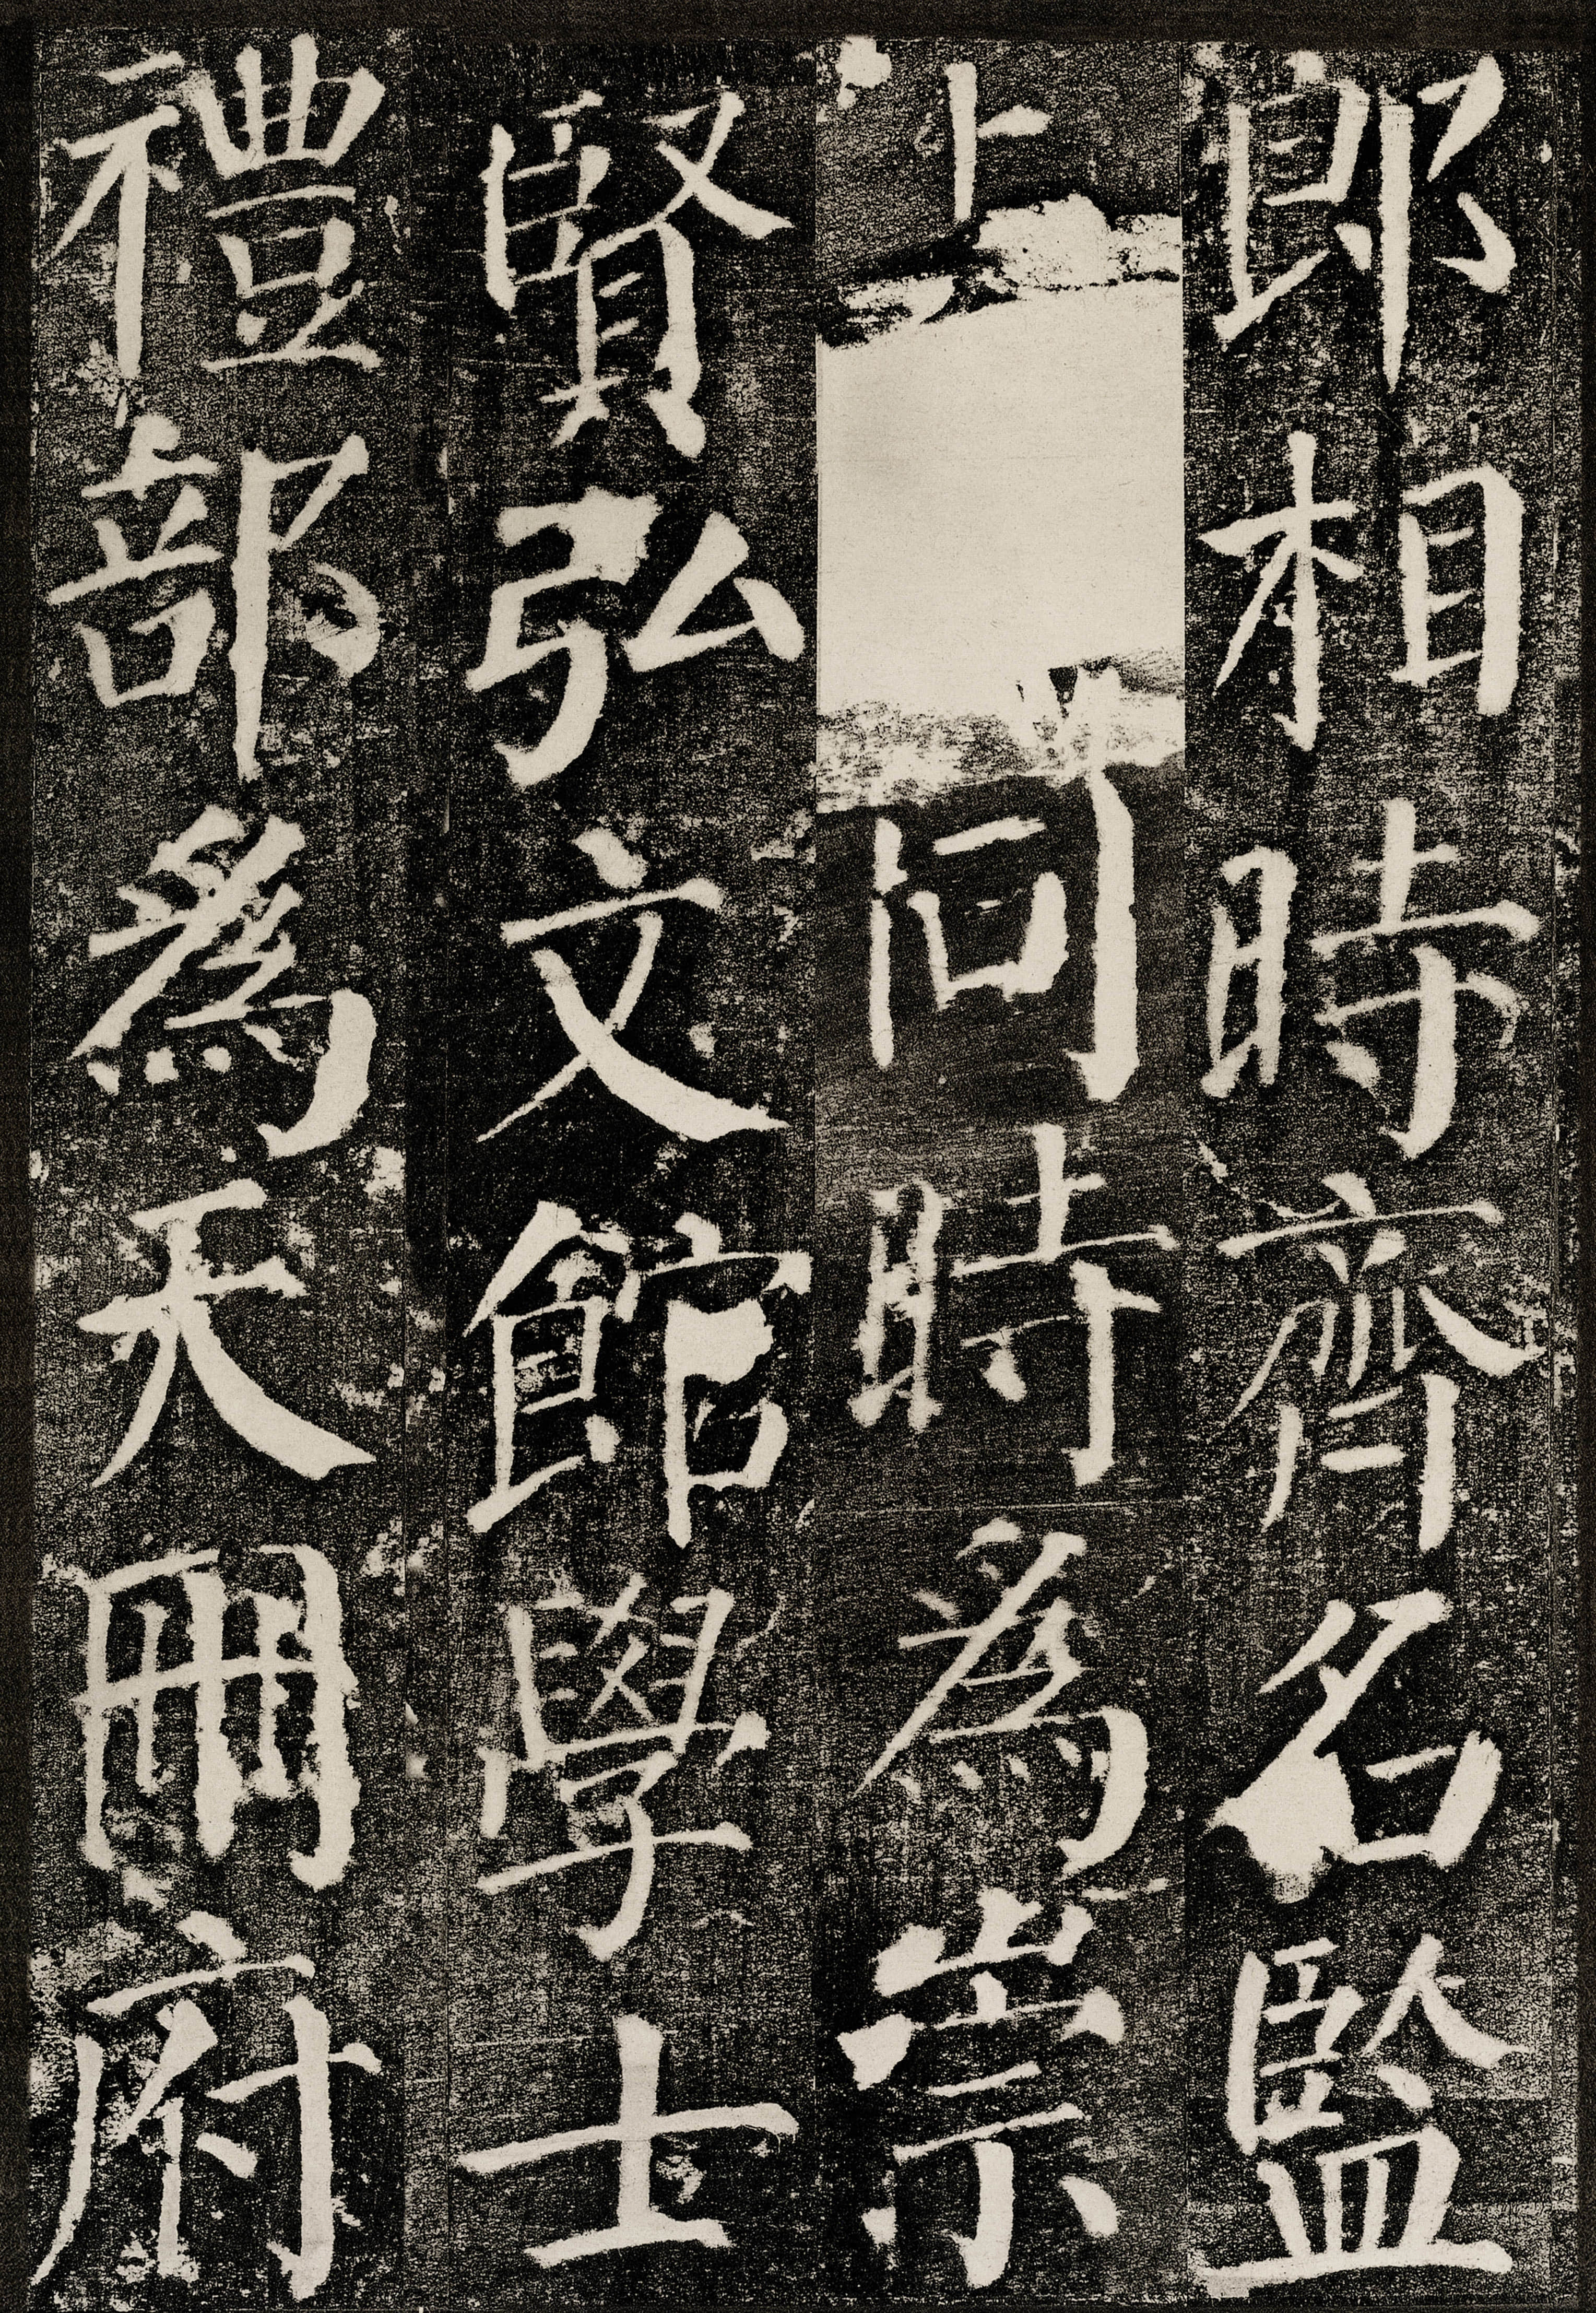 郎相時齊名監
同時為崇
賢弘文館學士
禮部爲天冊府